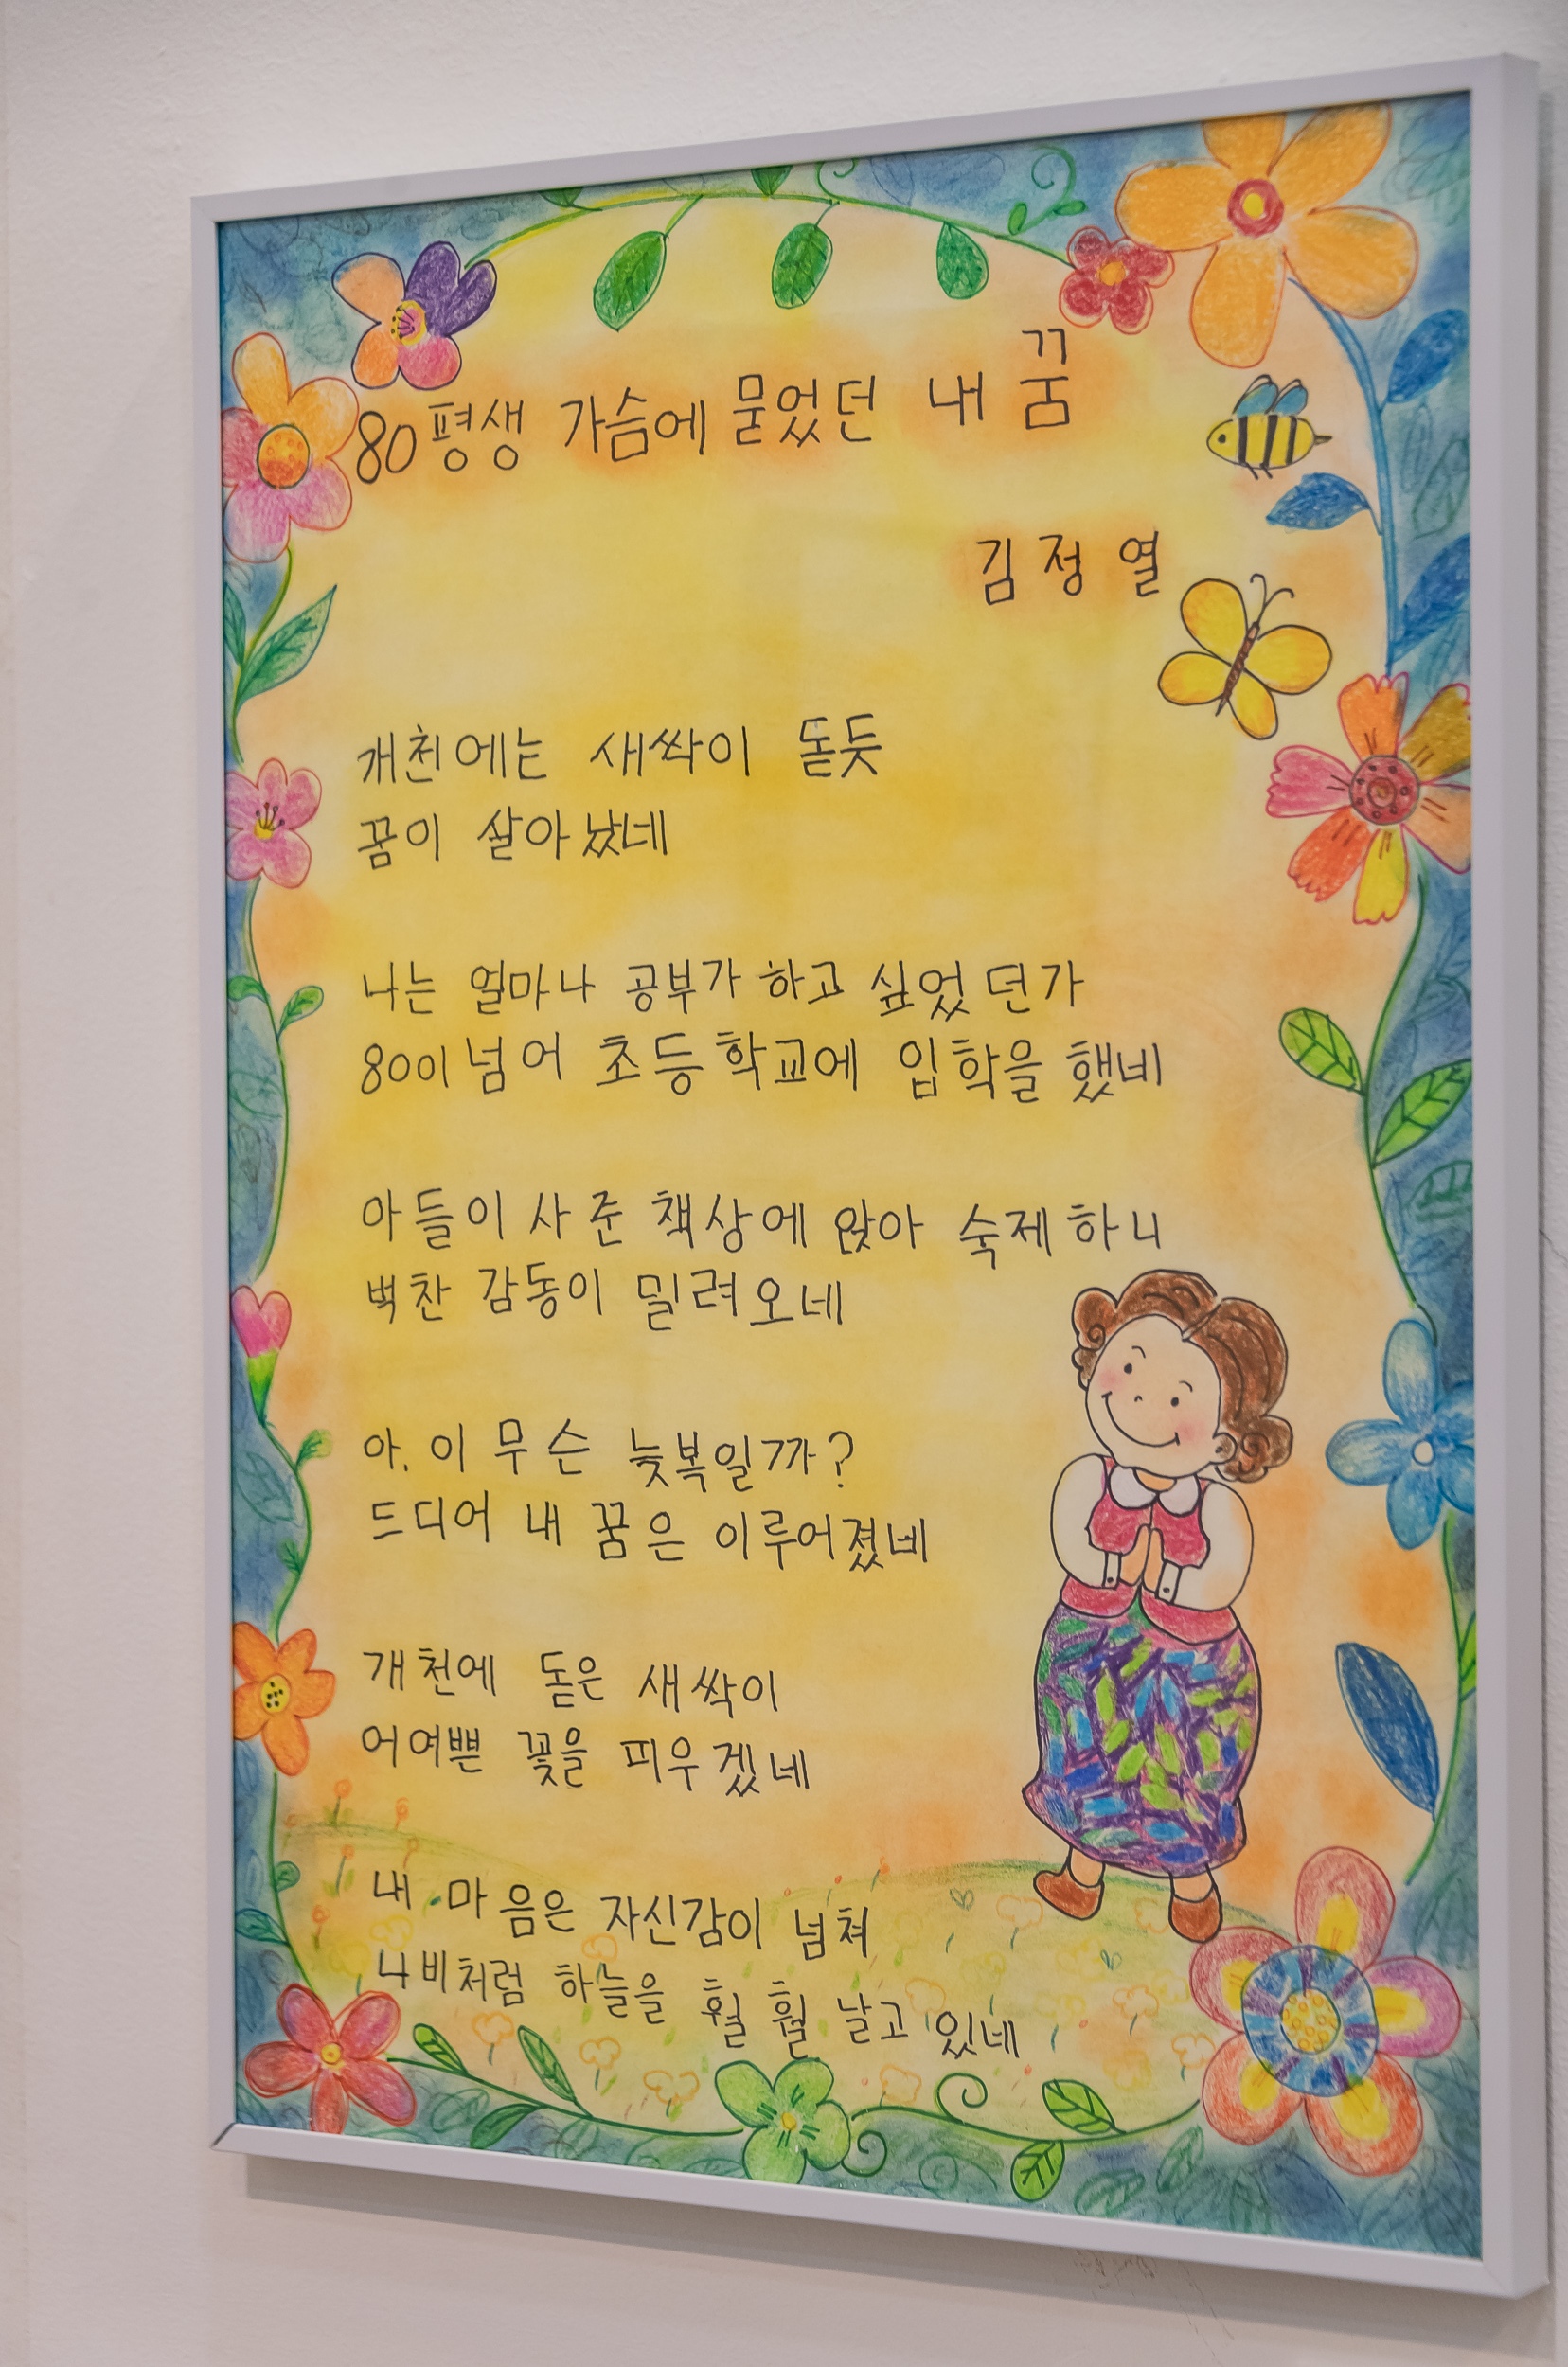 80평생 가슴에 묻었던 내 꿈
김정열
개천에는 새싹이 돋듯
꿈이 살아났네
나는 얼마나 공부가 하고 싶었던가
80이 넘어 초등학교에 입학을 했네
아들이 사준 책상에 앉아 숙제하니
벅찬 감동이 밀려오네
아. 이 무슨 늦복일까?
드디어 내 꿈은 이루어졌네
개천에 돋은 새싹이
어여쁜 꽃을 피우겠네
내 마음은 자신감이 넘쳐
나비처럼 하늘을 훨훨 날고 있네